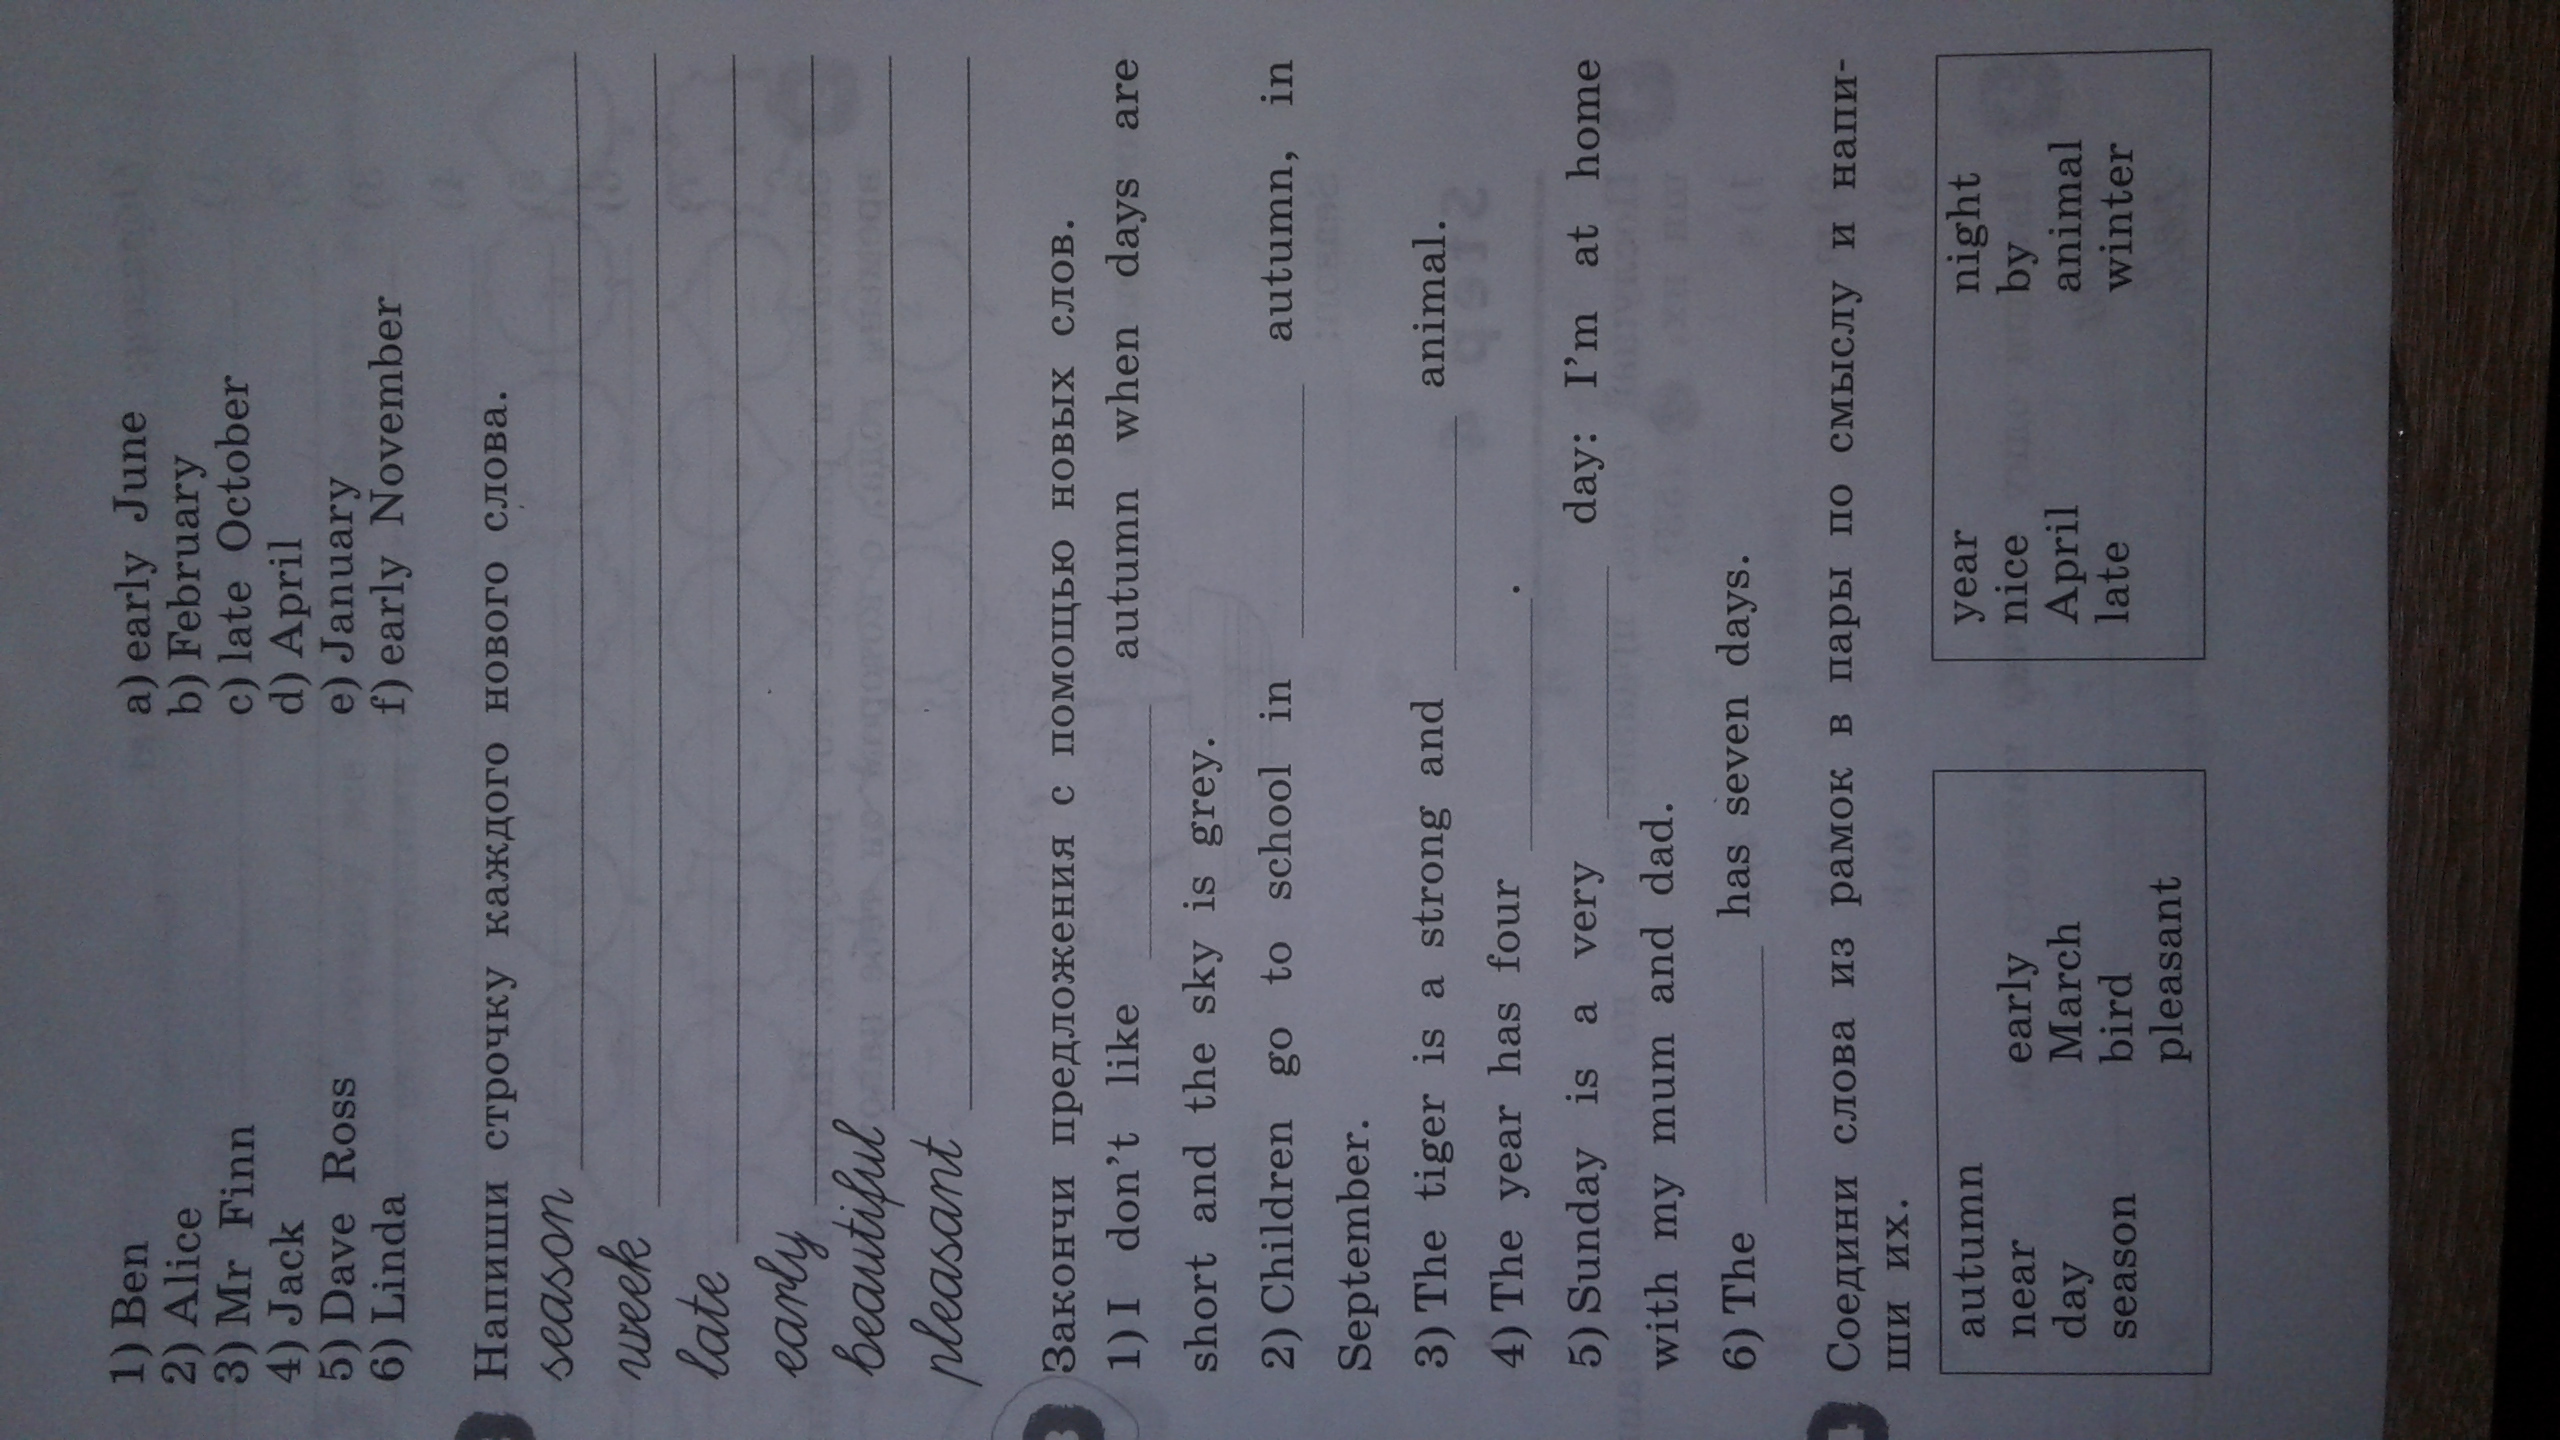 1) Ben a) early June
2) Alice b) February
3) Mr Finn c) late October
4) Jack d) April
5) Dave Ross e) January
6) Linda f) early November
Напиши строчку каждого нового слова.
season
week
late
early
beautiful
pleasant
3 Закончи предложения с помощью новых слов.
1) I don't like ________ autumn when days are
short and the sky is grey.
2) Children go to school in ________ autumn, in
September.
3) The tiger is a strong and ________ animal.
4) The year has four ________.
5) Sunday is a very ________ day: I'm at home
with my mum and dad.
6) The ________ has seven days.
Соедини слова из рамок в пары по смыслу и напи-
ши их.
autumn
near early
day March
season bird
pleasant
year night
nice by
April animal
late winter